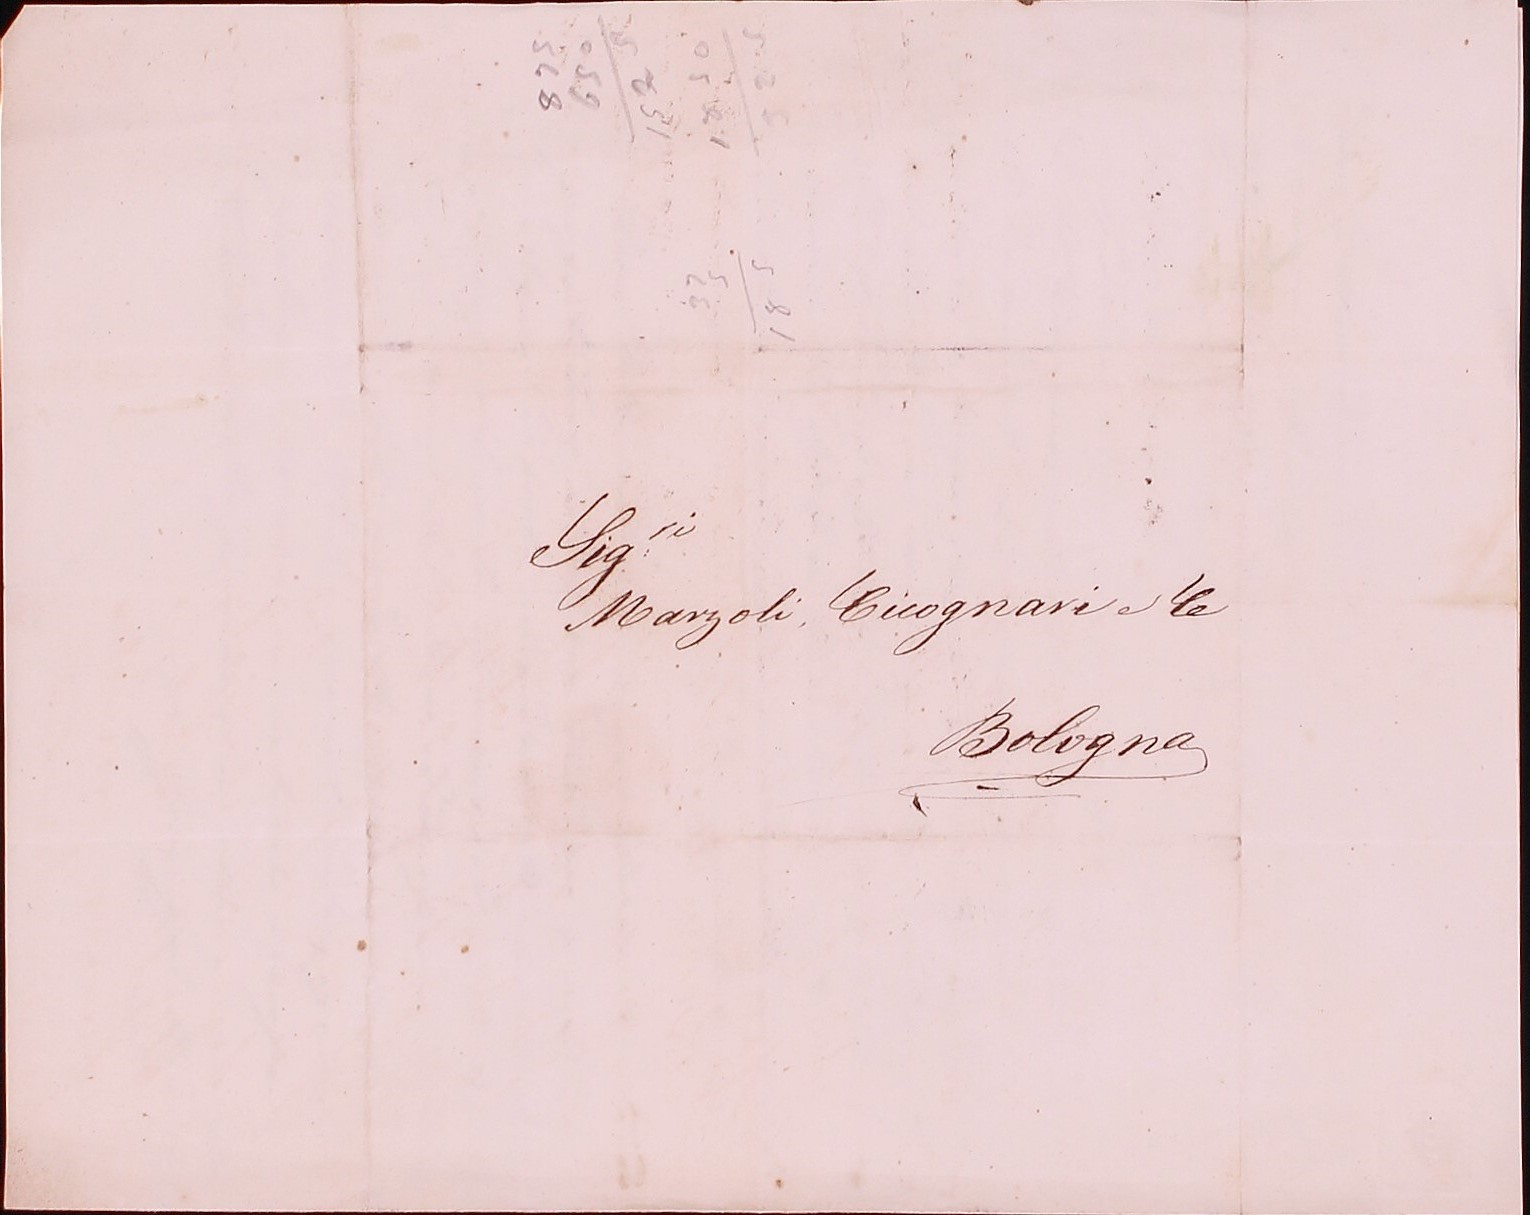 875
650
1525
1850
325
37
5
185
Sig.ri
Marzoli, Cicognari e Ce
Bologna